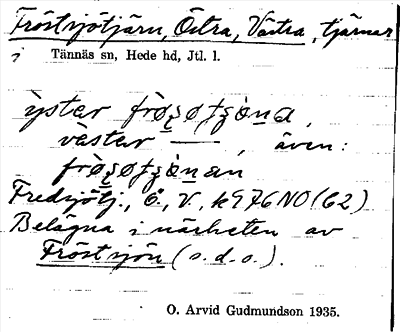 Fröstsjötjärn, Östra, Västra, tjärnar
i Tännäs sn, Hede hd, Jtl. l.
väster ——, även:
Fredsjötj., Ö., V., k 976 NO (62)
Belägna i närheten av
Fröstsjön (s.d.o.).
O. Arvid Gudmundson 1935.